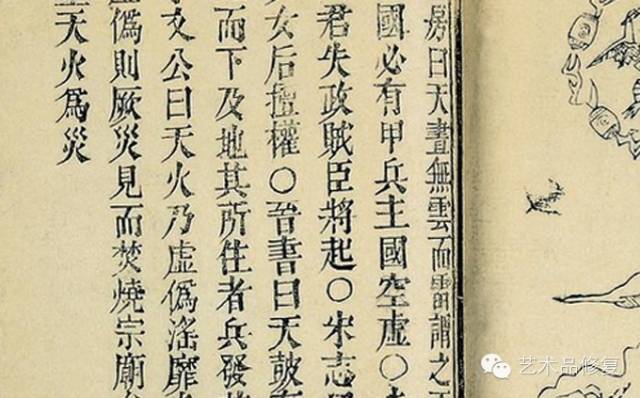 房曰天晝無雲而雷謂之天
國必有甲兵主國空虛〇
君失政賊臣將起〇宋志
女后擅權〇晉書曰天鼓
而下及地其所住者兵發
文公曰天火乃虛偽滛靡
虛偽則厥災見而焚燒宗廟
天火爲災
艺术品修复